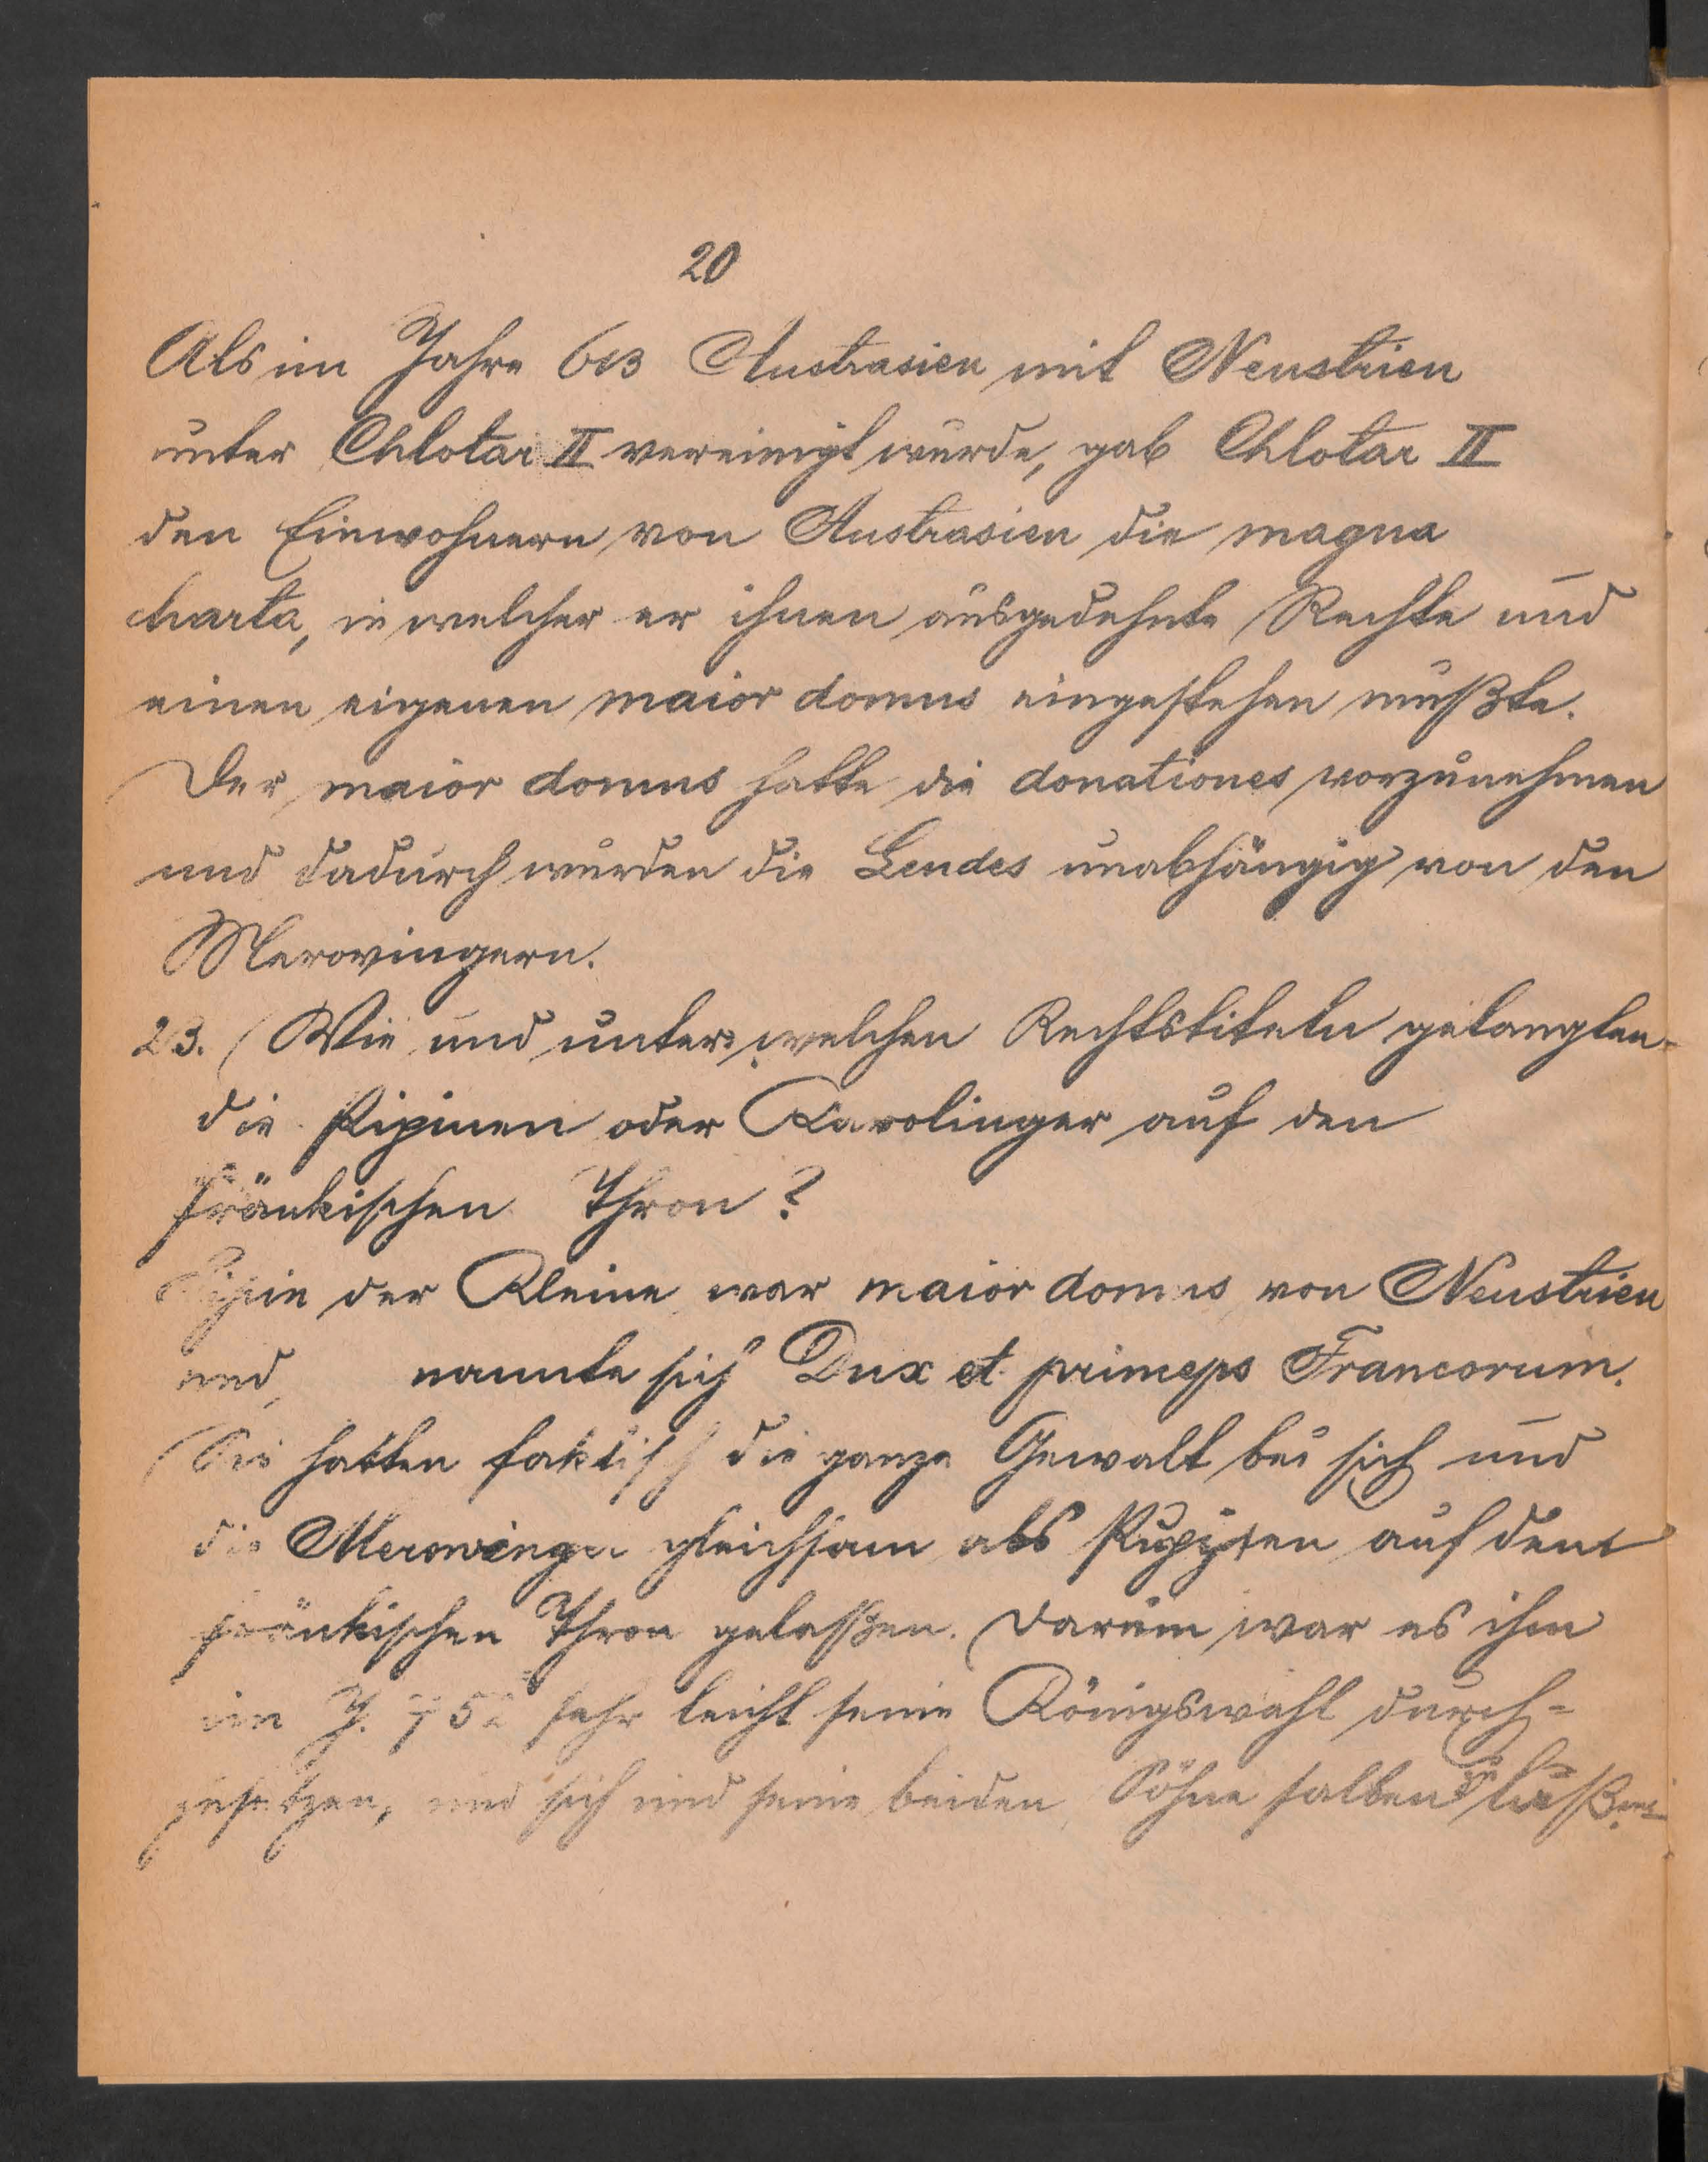 20
Als im Jahre 613 Austrasien mit Neustrien
unter Chlotar II vereinigt wurde, gab Chlotar II
den Einwohnern von Austrasien die magna
charta, in welcher er ihnen ausgedehnte Rechte und
einen eigenen maior domus eingestehen mußte.
Der maior domus hatte die donationes vorzunehmen
und dadurch wurden die Leudes unabhängig von den
Merovingern.
23. Wie und unter welchen Rechtstiteln gelangten
die Pipinen oder Karolinger auf den
fränkischen Thron?
Pipin der Kleine war maior domus von Neustrien
und nannte sich Dux et princeps Francorum.
Sie hatten faktisch die ganze Gewalt bei sich und
die Merowinger gleichsam als Puppen auf dem
fränkischen Thron gelaßen. Darum war es ihm
im J. 752 sehr leicht seine Königswahl durch-
zusetzen, und sich und seine beiden Söhne salben